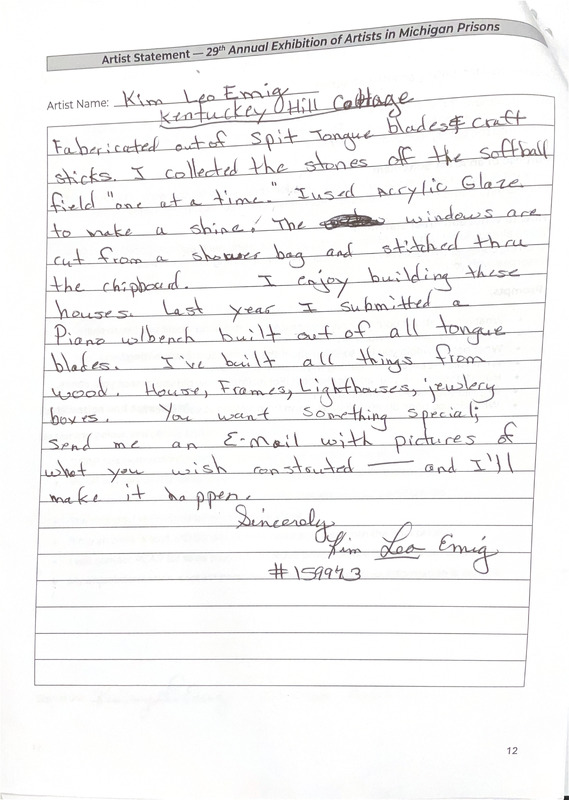 Artist Statement — 29th Annual Exhibition of Artists in Michigan Prisons
Artist Name: Kim Leo Emig
Kentuckey Hill Cottage
Fabericated out of Spit Tongue blades & craft
sticks. I collected the stones off the softball
field "one at a time." I used Acrylic Glaze
to make a shine! The windows are
cut from a shower bag and stitched thru
the chipboard. I enjoy building these
houses. Last year I submitted a
Piano w/bench built out of all tongue
blades. I've built all things from
wood. House, Frames, Lighthouses, jewlery
boxes. You want something special;
Send me an E-Mail with pictures of
what you wish constouted — and I'll
make it happen.
Sincerely
Kim Leo Emig
#159943
12